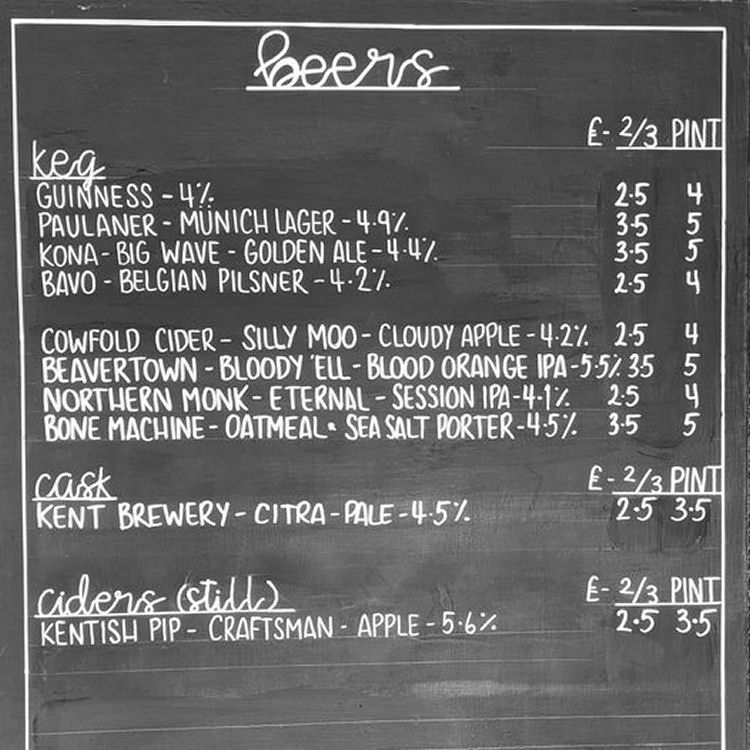 beers
£- 2/3 PINT
keg
GUINNESS - 4% 2.5 4
PAULANER - MUNICH LAGER - 4.9% 3.5 5
KONA - BIG WAVE - GOLDEN ALE - 4.4% 3.5 5
BAVO - BELGIAN PILSNER - 4.2% 2.5 4
COWFOLD CIDER - SILLY MOO - CLOUDY APPLE - 4.2% 2.5 4
BEAVERTOWN - BLOODY 'ELL - BLOOD ORANGE IPA - 5.5% 3.5 5
NORTHERN MONK - ETERNAL - SESSION IPA - 4.1% 2.5 4
BONE MACHINE - OATMEAL • SEA SALT PORTER - 4.5% 3.5 5
cask £ - 2/3 PINT
KENT BREWERY - CITRA - PALE - 4.5% 2.5 3.5
ciders (still) £- 2/3 PINT
KENTISH PIP - CRAFTSMAN - APPLE - 5.6% 2.5 3.5